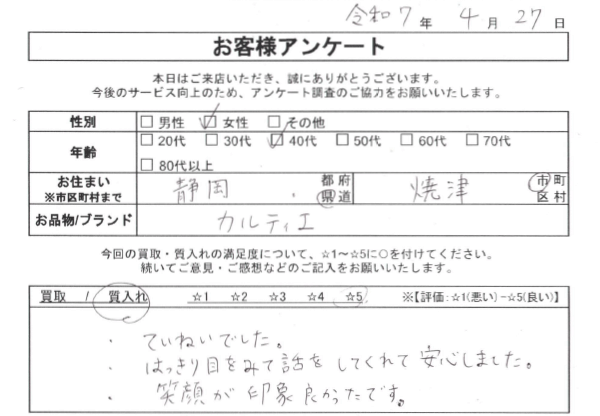 令和7年 4月 27日
お客様アンケート
本日はご来店いただき、誠にありがとうございます。
今後のサービス向上のため、アンケート調査のご協力をお願いいたします。
性別 □男性 ☑女性 □その他
年齢 □20代 □30代 ☑40代 □50代 □60代 □70代
□80代以上
お住まい ※市区町村まで 静岡 都府県道 焼津 市町区村
お品物/ブランド カルティエ
今回の買取・質入れの満足度について、☆1～☆5に○を付けてください。
続いてご意見・ご感想などのご記入をお願いいたします。
買取 / 質入れ ☆1 ☆2 ☆3 ☆4 ☆5 ※【評価:☆1(悪い)–☆5(良い)】
・ていねいでした。
・はっきり目をみて話をしてくれて安心しました。
・笑顔が印象良かったです。